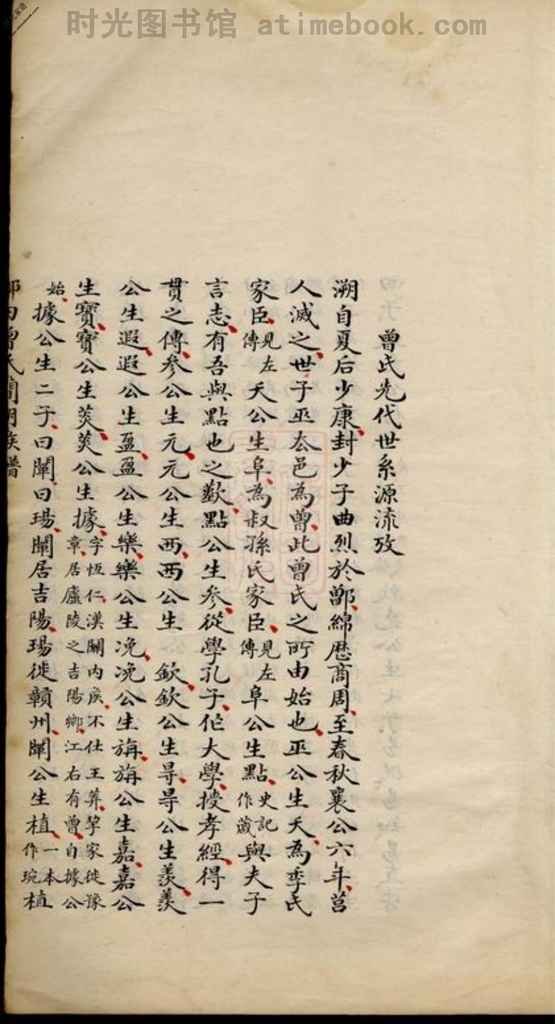 时光图书馆 atimebook.com
曾氏先代世系源流攷
溯自夏后少康封少子曲烈於鄫綿歷商周至春秋襄公六年莒
人滅之世子巫去邑為曾此曾氏之所由始也巫公生夭為季氏
家臣見左傳夭公生阜為叔孫氏家臣見左傳阜公生點史記作蒧與夫子
言志有吾與點也之歎點公生參從學孔子作大學授孝經得一
貫之傳參公生元元公生西西公生 欽欽公生尋尋公生羨羨
公生遐遐公生盈盈公生樂樂公生浼浼公生旃旃公生嘉嘉公
生寶寶公生美美公生據字恆仁漢關內侯不仕王莽挈家徙豫章居廬陵之吉陽鄉江右有曾自據公始
據公生二子曰闡曰瑒闡居吉陽瑒徙贛州闡公生植一本作琬植
內曾氏 族譜